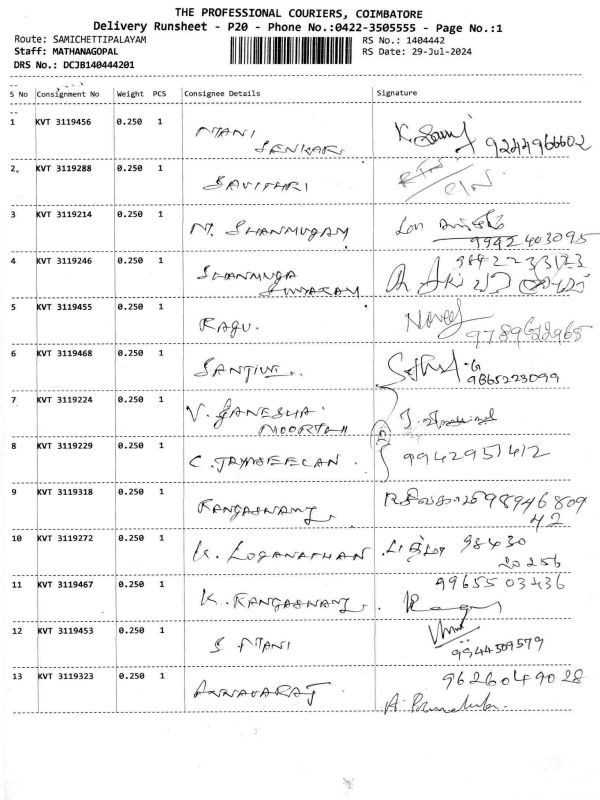 THE PROFESSIONAL COURIERS, COIMBATORE
Delivery Runsheet - P20 - Phone No.:0422-3505555 - Page No.:1
Route: SAMICHETTIPALAYAM RS No.: 1404442
Staff: MATHANAGOPAL RS Date: 29-Jul-2024
DRS No.: DCJB140444201
S No Consignment No Weight PCS Consignee Details Signature
1 KVT 3119456 0.250 1 MANI
SENKAR 9244966602
2, KVT 3119288 0.250 1 SAVITHRI RTN
CIN
3 KVT 3119214 0.250 1 N. SHANMUGAM
9942403095
4 KVT 3119246 0.250 1 SHANMUGA
5 KVT 3119455 0.250 1 RAGU.
6 KVT 3119468 0.250 1
9865223099
7 KVT 3119224 0.250 1 V. GANESHA
MOORTHI
8 KVT 3119229 0.250 1 C. 9942951412
9 KVT 3119318 0.250 1 RANGASWAMY 98946809
42
10 KVT 3119272 0.250 1 K. LOGANATHAN 98430
20256
11 KVT 3119467 0.250 1 K. RANGASWAMY. 9965503436
12 KVT 3119453 0.250 1 S MANI
9944509579
13 KVT 3119323 0.250 1 ANNAGARAJ 9626049028